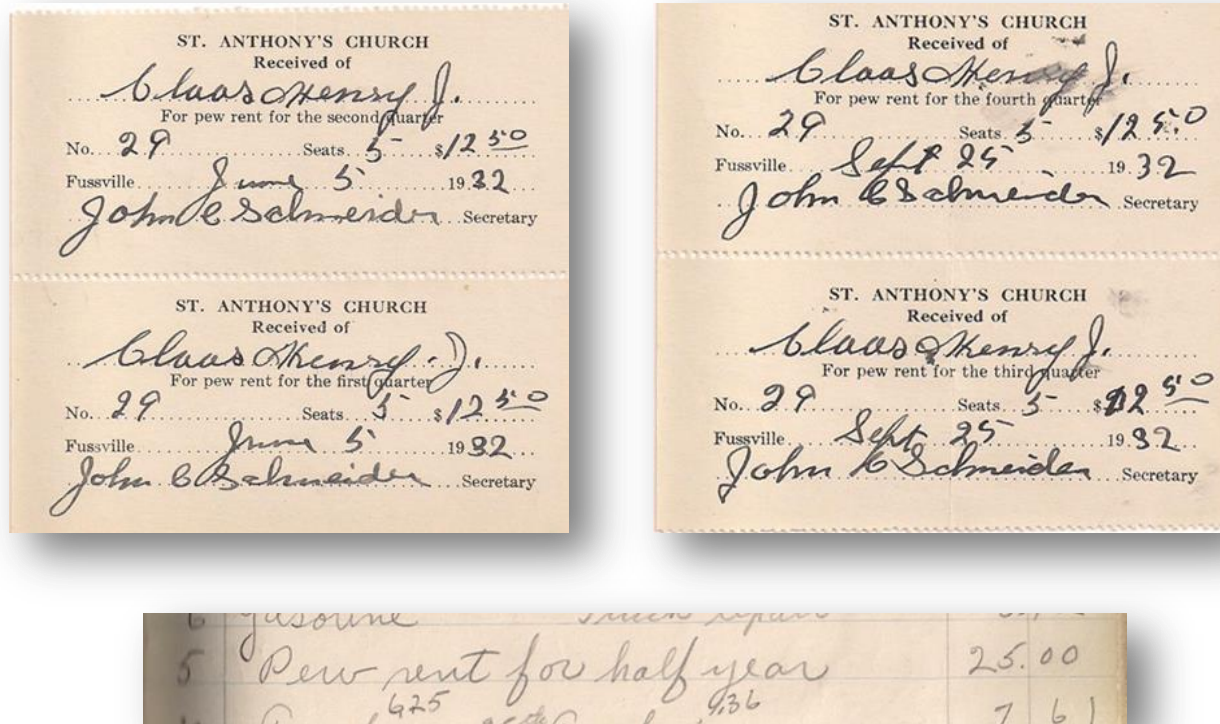 ST. ANTHONY'S CHURCH
Received of
Claas Henry J.
For pew rent for the second quarter
No. 29 Seats 5 $12 50
Fussville June 5 1932
John C Schneider Secretary
ST. ANTHONY'S CHURCH
Received of
Claas Henry J.
For pew rent for the first quarter
No. 29 Seats 5 $12 50
Fussville June 5 1932
John C Schneider Secretary
ST. ANTHONY'S CHURCH
Received of
Claas Henry J.
For pew rent for the fourth quarter
No. 29 Seats 5 $12 50
Fussville Sept 25 1932
John C Schneider Secretary
ST. ANTHONY'S CHURCH
Received of
Claas Henry J.
For pew rent for the third quarter
No. 29 Seats 5 $12 50
Fussville Sept 25 1932
John C Schneider Secretary
6 Gasoline Truck repair
5 Pew rent for half year 25.00
625 9.36
7 61